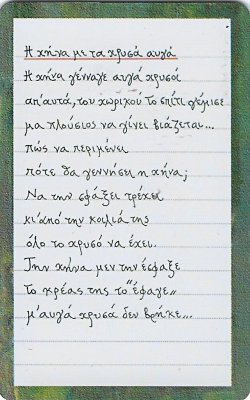 Η χήνα με τα χρυσά αυγά
Η χήνα γένναγε αυγά χρυσά
απ'αυτά, του χωρικού το σπίτι γέμισε
μα πλούσιος να γίνει βιάζεται...
πώς να περιμένει
πότε θα γεννήσει η χήνα;
Να την σφάξει τρέχει
κι'από την κοιλιά της
όλο το χρυσό να έχει.
Την χήνα μεν την έσφαξε
το κρέας της το "έφαγε"
μ'αυγά χρυσά δεν βρήκε...